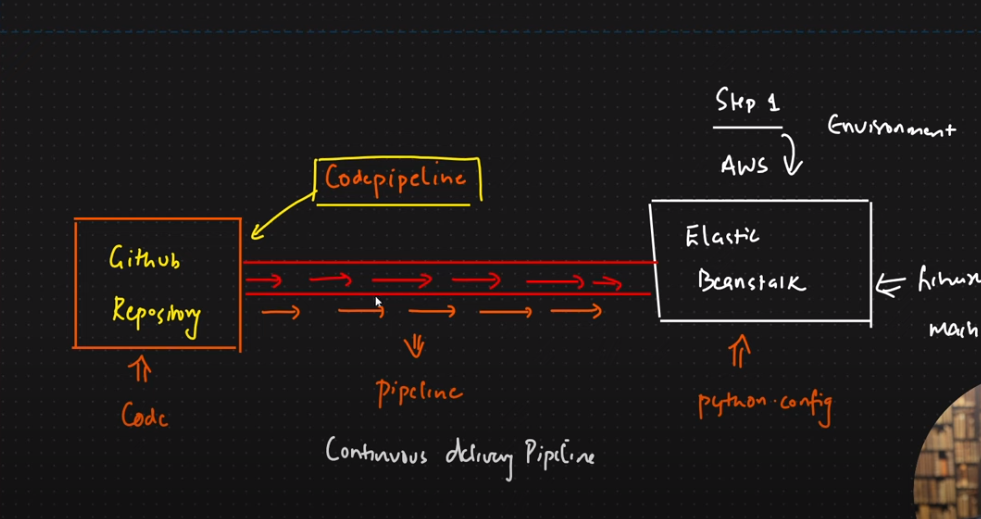 Step 1
Environment
AWS
Codepipeline
Github
Repository
Elastic
Beanstalk
Code
Pipeline
python.config
Continuous delivery Pipeline